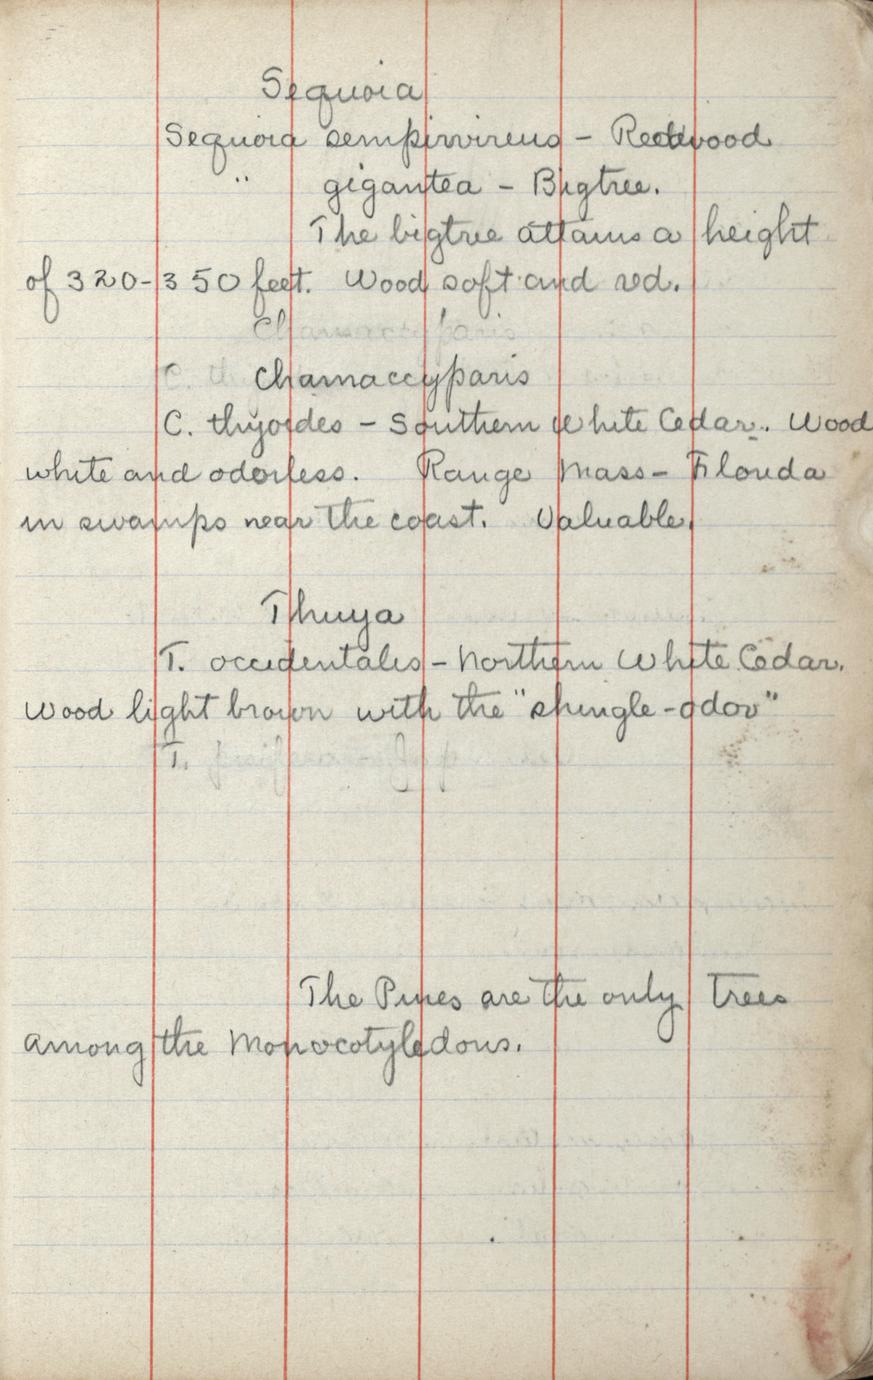 Sequoia
Sequoia sempirvirens - Redwood
" gigantea - Bigtree.
The bigtree attains a height
of 320-350 feet. Wood soft and red.
Chamaecyparis
C. thyoides - Southern White Cedar. Wood
white and odorless. Range Mass- Florida
in swamps near the coast. Valuable.
Thuya
T. occidentalis - Northern White Cedar.
Wood light brown with the "shingle-odor"
T.
The Pines are the only trees
among the Monocotyledons.